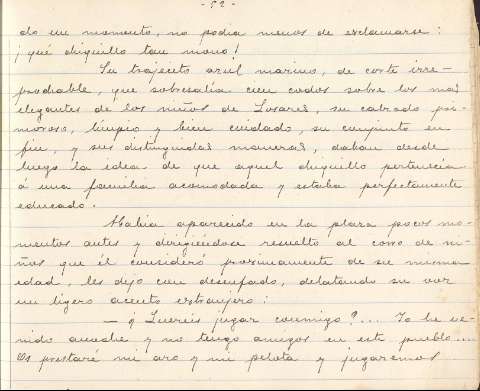 - 52 -
do un momento, no podia menos de esclamarse:
¡qué chiquillo tan mono!
Su trajecito azul marino, de corte irre-
prochable, que sobresalía cien codos sobre los más
elegantes de los niños de Linares, su calzado pri-
moroso, limpio y bien cuidado, su conjunto en
fin, y sus distinguidas maneras, daban desde
luego la idea de que aquel chiquillo pertenecía
á una familia acomodada y estaba perfectamente
educado.
Había aparecido en la plaza pocos mo-
mentos antes y dirigiéndose resuelto al corro de ni-
ños que él consideró proximamente de su misma
edad, les dijo con desenfado, delatando su voz
un ligero acento extranjero:
— ¿ Quereis jugar conmigo?... Yo he ve-
nido anoche y no tengo amigos en este pueblo....
Os prestaré mi aro y mi pelota y jugaremos